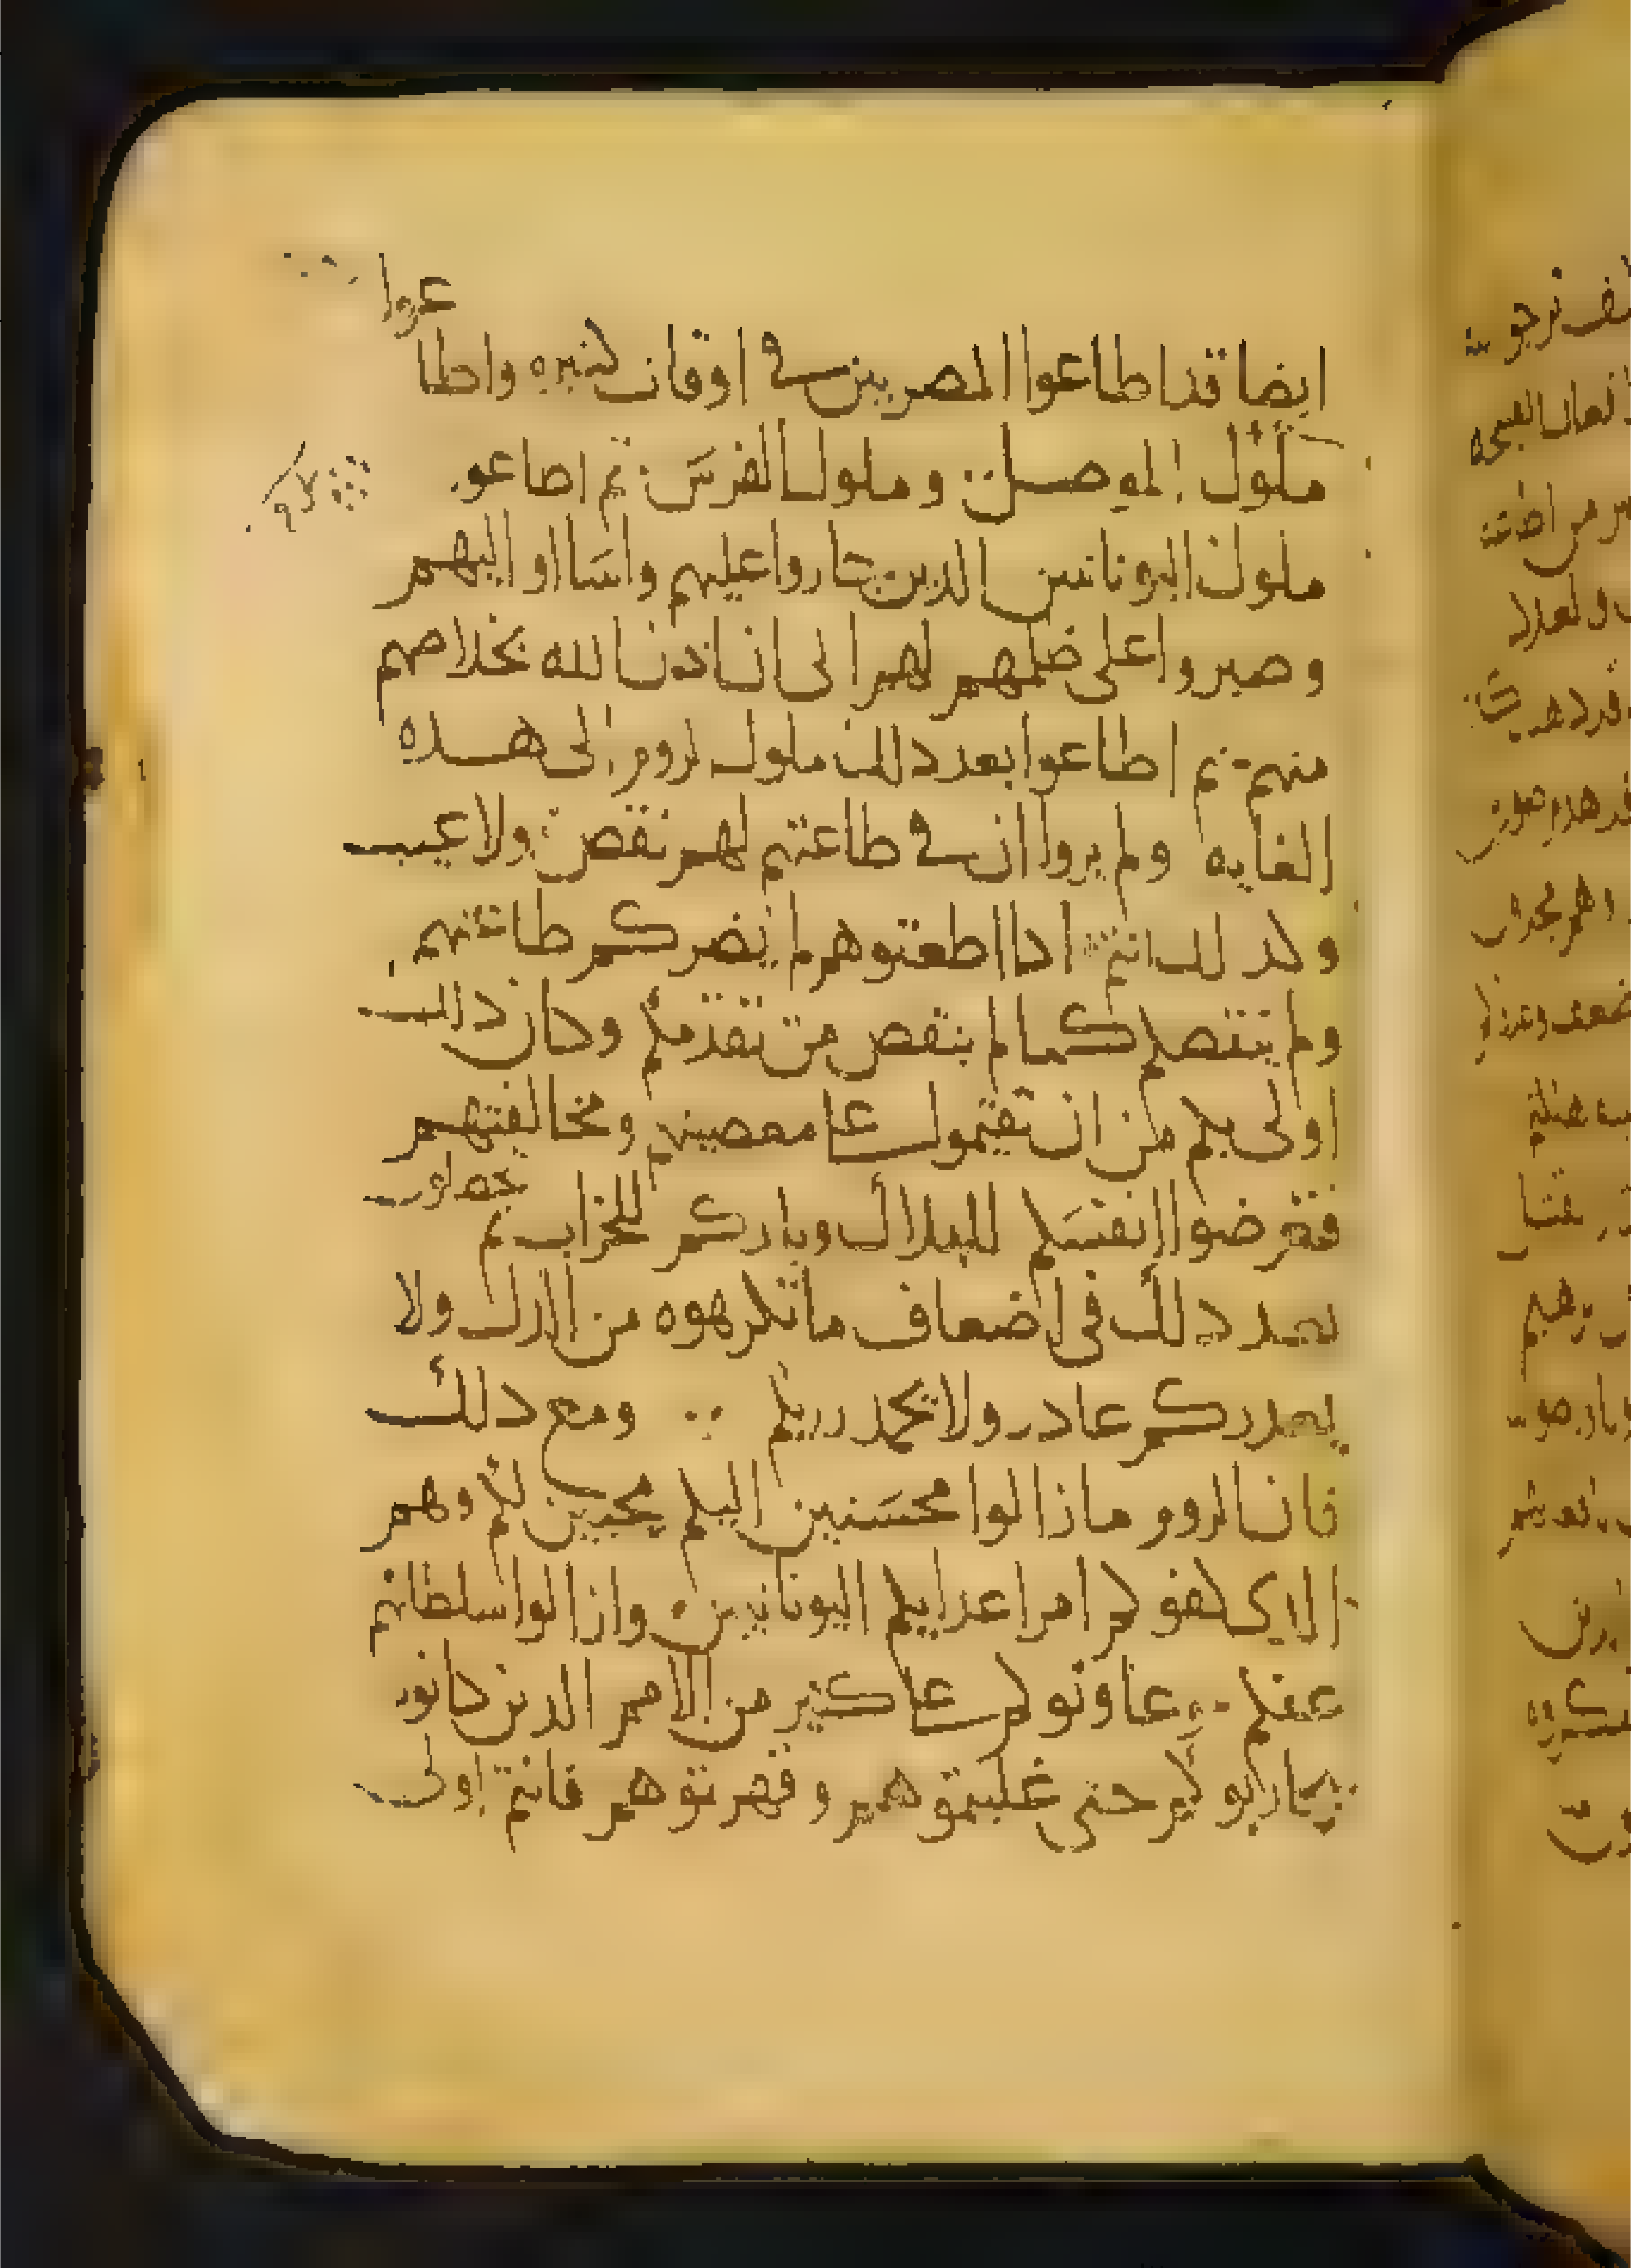 ايضا قد اطاعوا المصريين في اوقات كثيره واطا
عوا
ملوك الموصل وملوك الفرس ثم اطاعو
ملوك اليونانيين الذين جاروا عليهم واساوا اليهم
وصبروا على ظلمهم لهم الى ان اذن الله بخلاصهم
منهم ثم اطاعوا بعد ذلك ملوك الروم الى هذه
الغايه ولم يروا ان في طاعتهم لهم نقص ولا عيب
وكذلك انتم اذا اطعتوهم لم يضركم طاعتهم
ولم ينقصكم كما لم ينقص من تقدمكم وكان ذلك
اولى بكم من ان تقيموا على معصيتهم ومخالفتهم
فتعرضوا انفسكم للهلاك وبلادكم للخراب ثم
تحصلون
بعد ذلك في اضعاف ما تكرهوه من الذل ولا
يعدركم عادر ولا يحمد رايكم ومع ذلك
فان الروم ما زالوا محسنين اليكم محبين لكم وهم
الذي كفوكم امر اعدايكم اليونانيين وازالوا سلطانهم
عنكم وعاونوكم على كثير من الامم الذين كانوا
يحاربوكم حتى غلبتموهم وقهرتوهم فانتم اولى